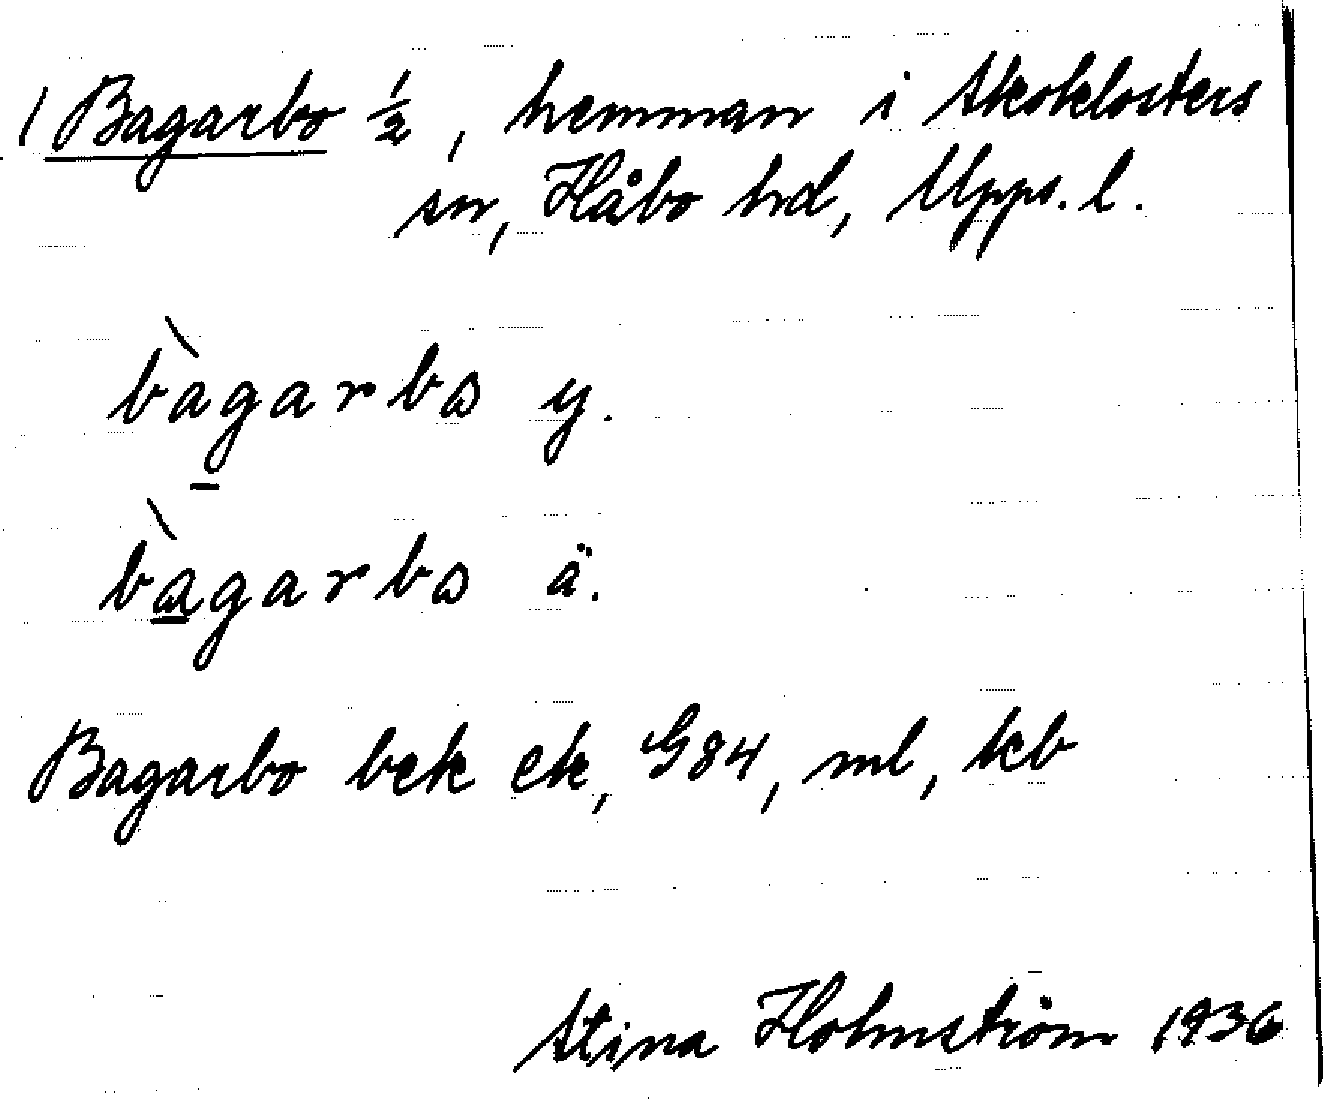 1 Bagarbo ½, hemman i Skoklosters
sn, Håbo hd, Upps. l.
bàgarbω y.
bàgarbω ä.
Bagarbo bek ek, G84, ml, kb
Stina Holmström 1936